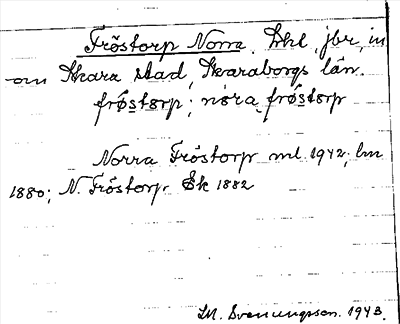 Fröstorp Norra, lhl, jbr, in
om Skara stad, Skaraborgs län.
frǿstørp; nøra frǿstørp
Norra Fröstorp ml 1942; lm
1880; N. Fröstorp Ek 1882
M. Svenungsson. 1943.